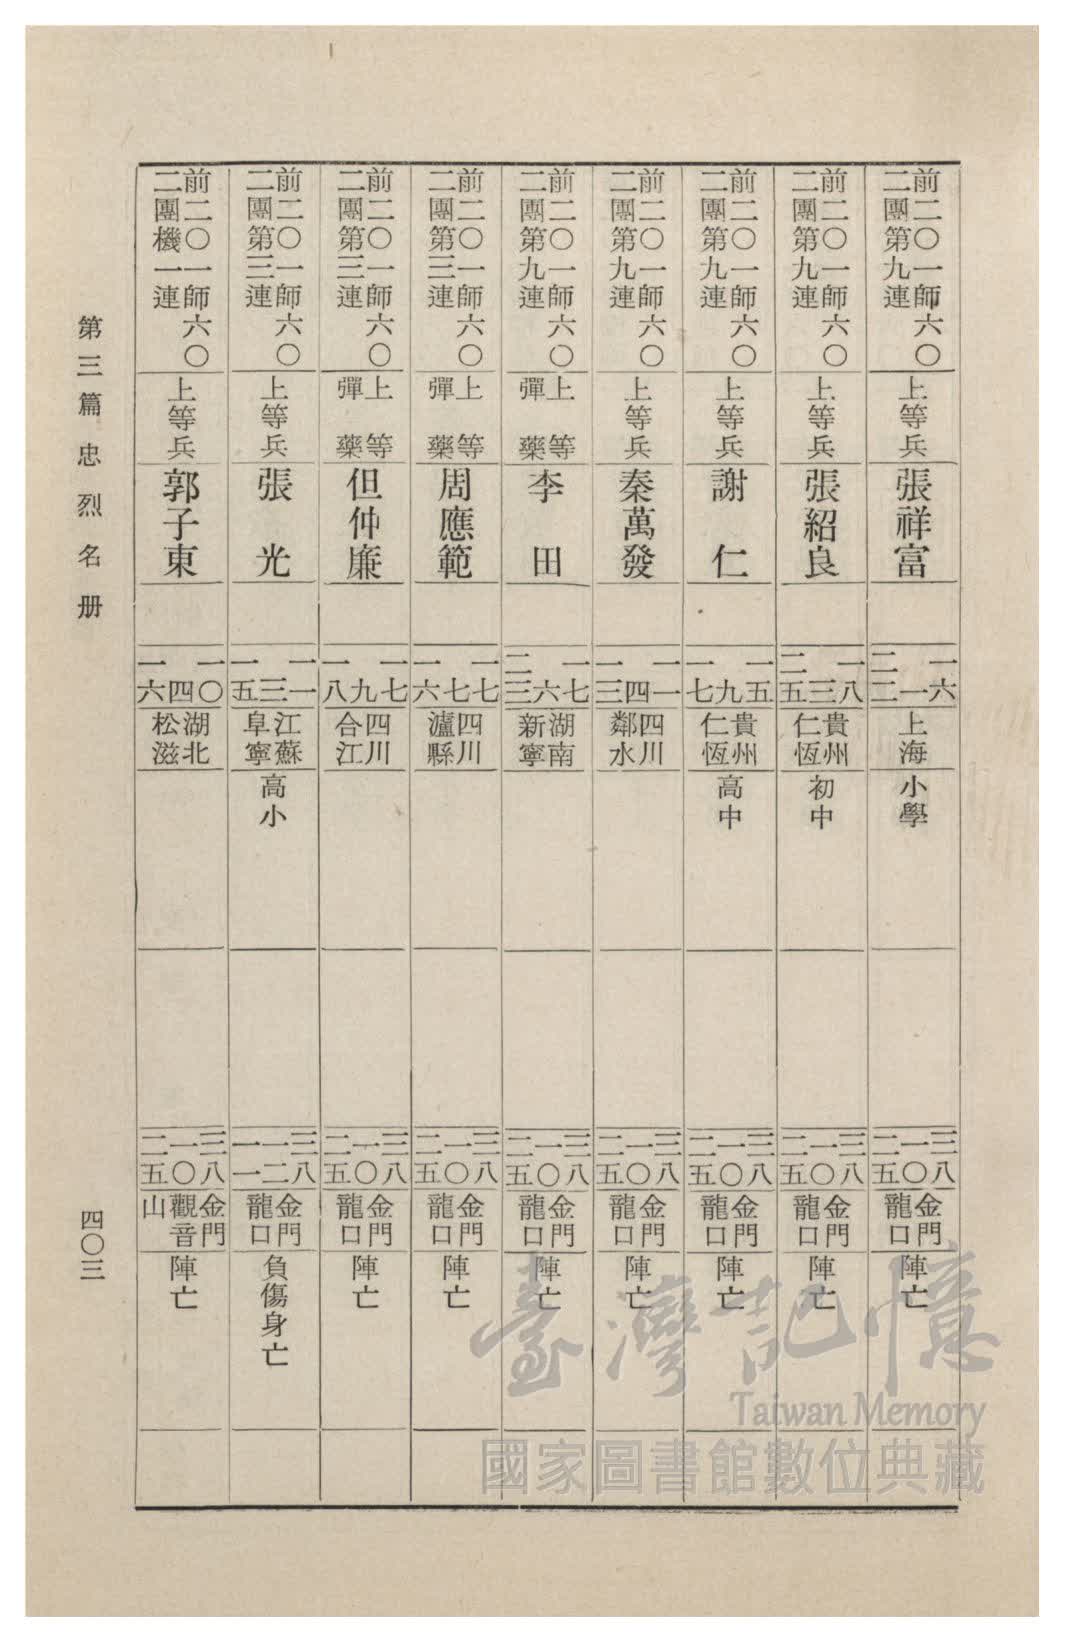 前二〇一師六〇
二團第九連
上等兵
張祥富
一六
一
二二
上海
小學
三八
一〇
二五
金門
龍口
陣亡
前二〇一師六〇
二團第九連
上等兵
張紹良
一八
三
二五
貴州
仁恆
初中
三八
一〇
二五
金門
龍口
陣亡
前二〇一師六〇
二團第九連
上等兵
謝仁
一五
九
一七
貴州
仁恆
高中
三八
一〇
二五
金門
龍口
陣亡
前二〇一師六〇
二團第九連
上等兵
秦萬發
一一
四
一三
四川
鄰水
三八
一〇
二五
金門
龍口
陣亡
前二〇一師六〇
二團第九連
上等
彈藥
李田
一七
六
二三
湖南
新寧
三八
一〇
二五
金門
龍口
陣亡
前二〇一師六〇
二團第三連
上等
彈藥
周應範
一七
七
一六
四川
瀘縣
三八
一〇
二五
金門
龍口
陣亡
前二〇一師六〇
二團第三連
上等
彈藥
但仲廉
一七
九
一八
四川
合江
三八
一〇
二五
金門
龍口
陣亡
前二〇一師六〇
二團第三連
上等兵
張光
一一
三
一五
江蘇
阜寧
高小
三八
一二
一一
金門
龍口
負傷身亡
前二〇一師六〇
二團機一連
上等兵
郭子東
一〇
四
一六
湖北
松滋
三八
一〇
二五
金門
觀音
山
陣亡
第三篇 忠烈名册
四〇三
臺灣記憶
Taiwan Memory
國家圖書館數位典藏